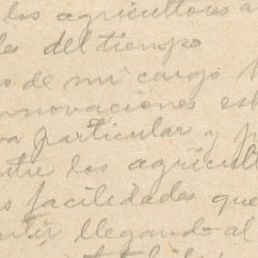 los agricultores a
del tiempo
de mi cargo
innovaciones est
particular y p
entre los agricult
facilidades que
llegando al